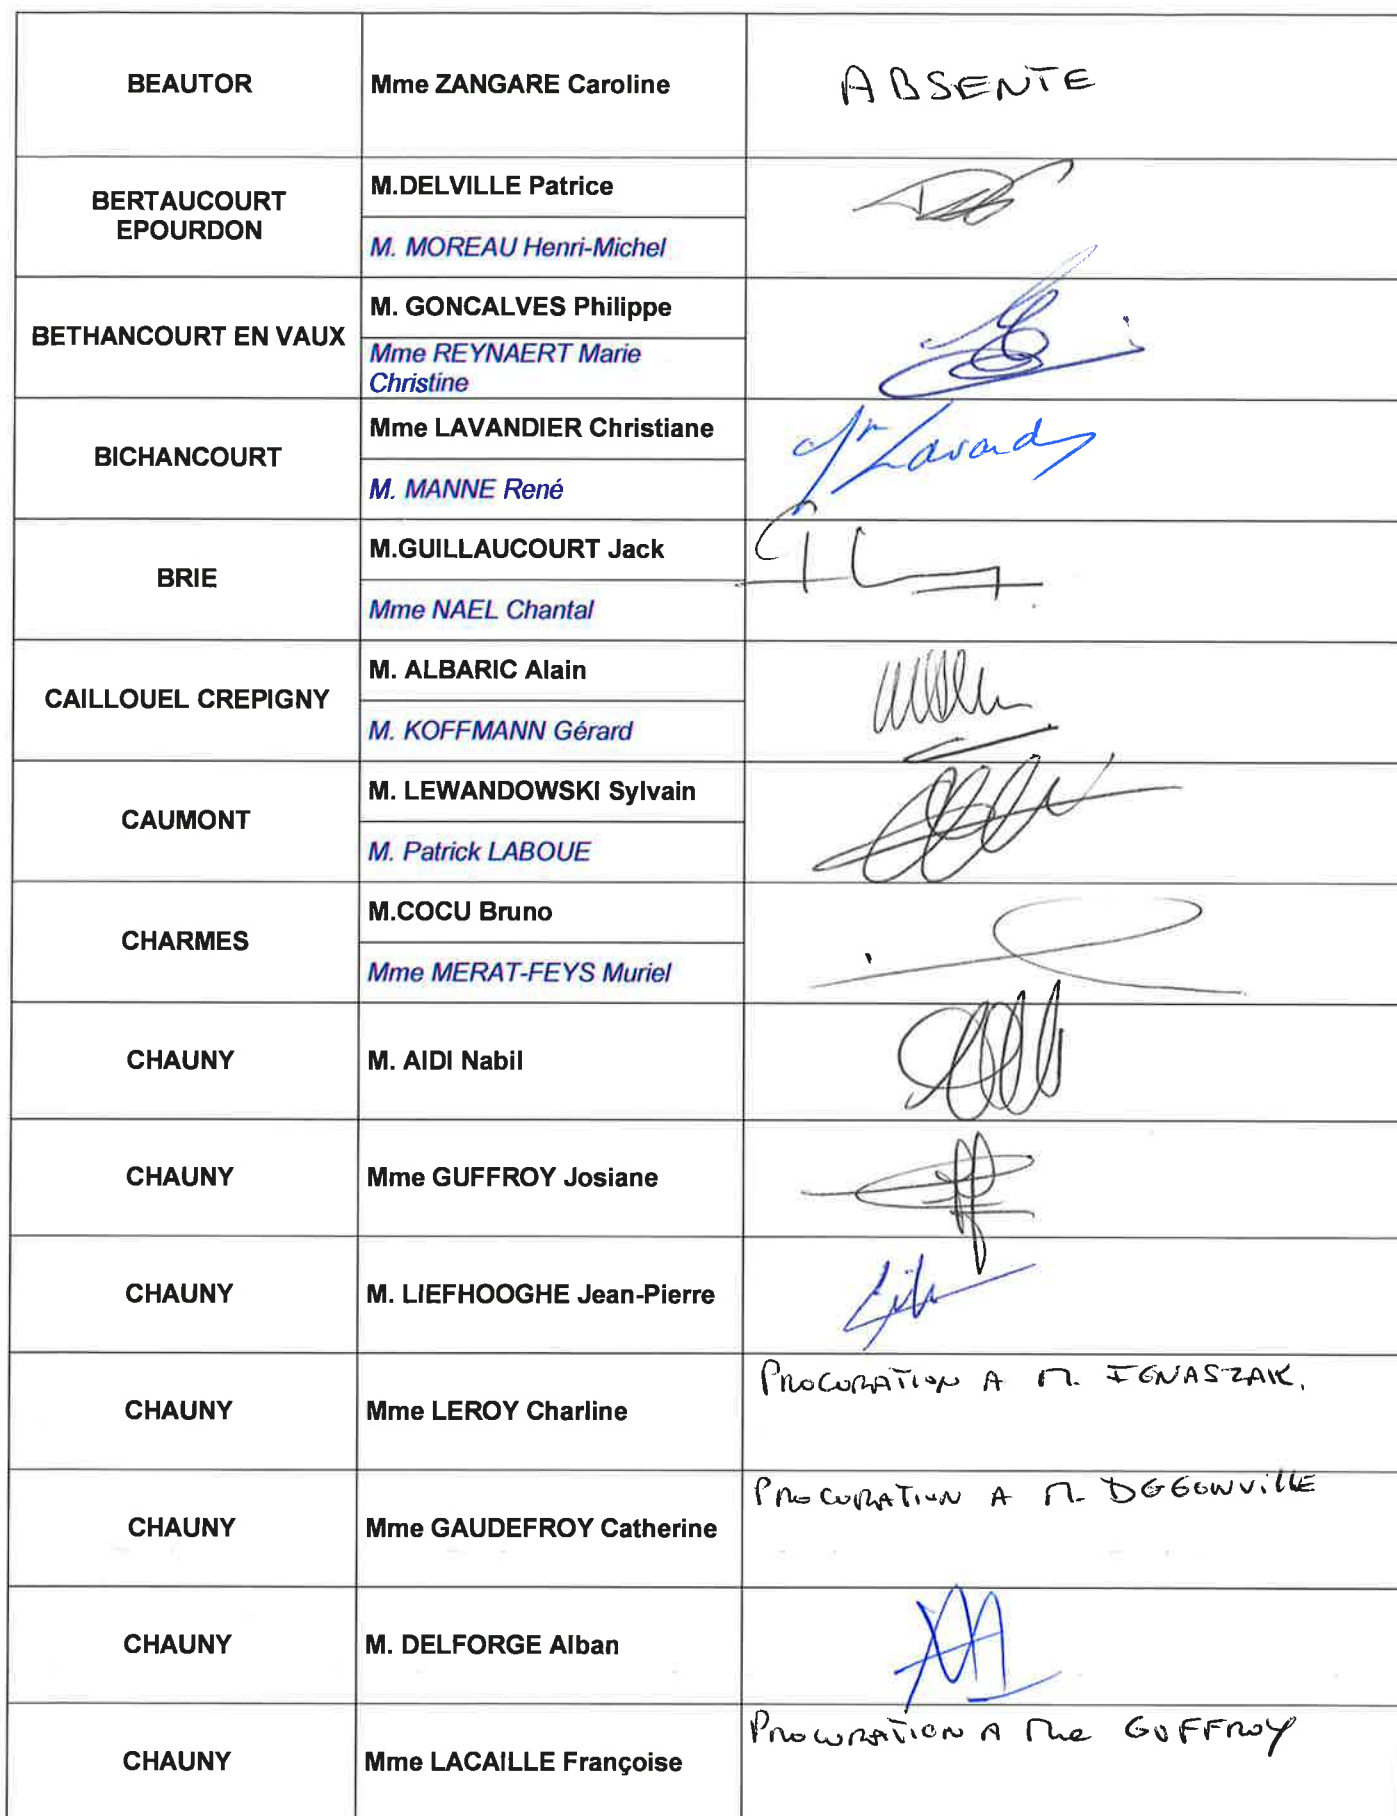 BEAUTOR
Mme ZANGARE Caroline
ABSENTE
BERTAUCOURT
EPOURDON
M.DELVILLE Patrice
M. MOREAU Henri-Michel
BETHANCOURT EN VAUX
M. GONCALVES Philippe
Mme REYNAERT Marie
Christine
BICHANCOURT
Mme LAVANDIER Christiane
M. MANNE René
BRIE
M.GUILLAUCOURT Jack
Mme NAEL Chantal
CAILLOUEL CREPIGNY
M. ALBARIC Alain
M. KOFFMANN Gérard
CAUMONT
M. LEWANDOWSKI Sylvain
M. Patrick LABOUE
CHARMES
M.COCU Bruno
Mme MERAT-FEYS Muriel
CHAUNY
M. AIDI Nabil
CHAUNY
Mme GUFFROY Josiane
CHAUNY
M. LIEFHOOGHE Jean-Pierre
CHAUNY
Mme LEROY Charline
PROCURATION A M. IGNASZAK.
CHAUNY
Mme GAUDEFROY Catherine
PROCURATION A M.
CHAUNY
M. DELFORGE Alban
CHAUNY
Mme LACAILLE Françoise
PROCURATION A Mme GUFFROY